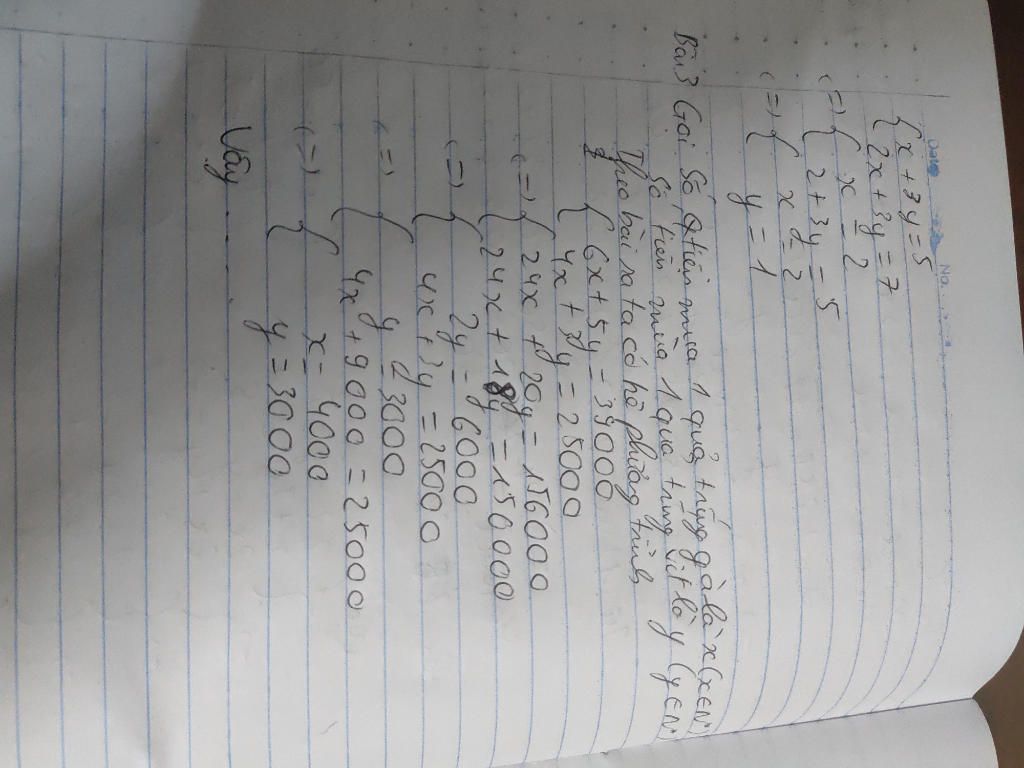 Date
No.
{ x + 3y = 5
2x + 3y = 7
(=) { x = 2
2 + 3y = 5
(=) { x = 2
y = 1
Bài 3 Gọi số tiền mua 1 quả trứng gà là x (x∈N)
số tiền mua 1 quả trứng vịt là y (y∈N)
Theo bài ra ta có hệ phương trình
{ 6x + 5y = 39000
4x + 3y = 25000
(=) { 24x + 20y = 156000
24x + 18y = 150000
(=) { 2y = 6000
4x + 3y = 25000
(=) { y = 3000
4x + 9000 = 25000
(=) { x = 4000
y = 3000
Vậy .......